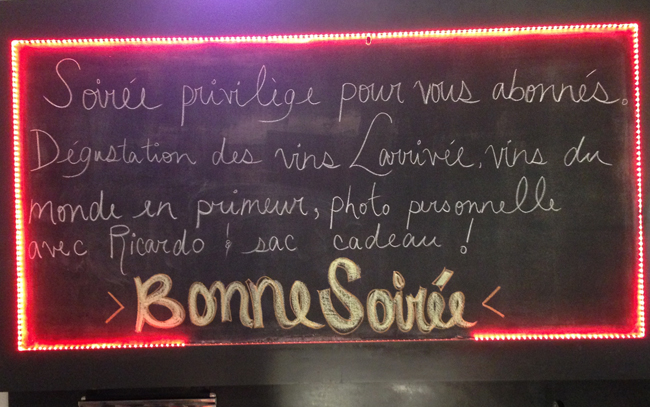 Soirée privilège pour vous abonnés.
Dégustation des vins Larrivée, vins du
monde en primeur, photo personnelle
avec Ricardo & sac cadeau !
> Bonne Soirée <